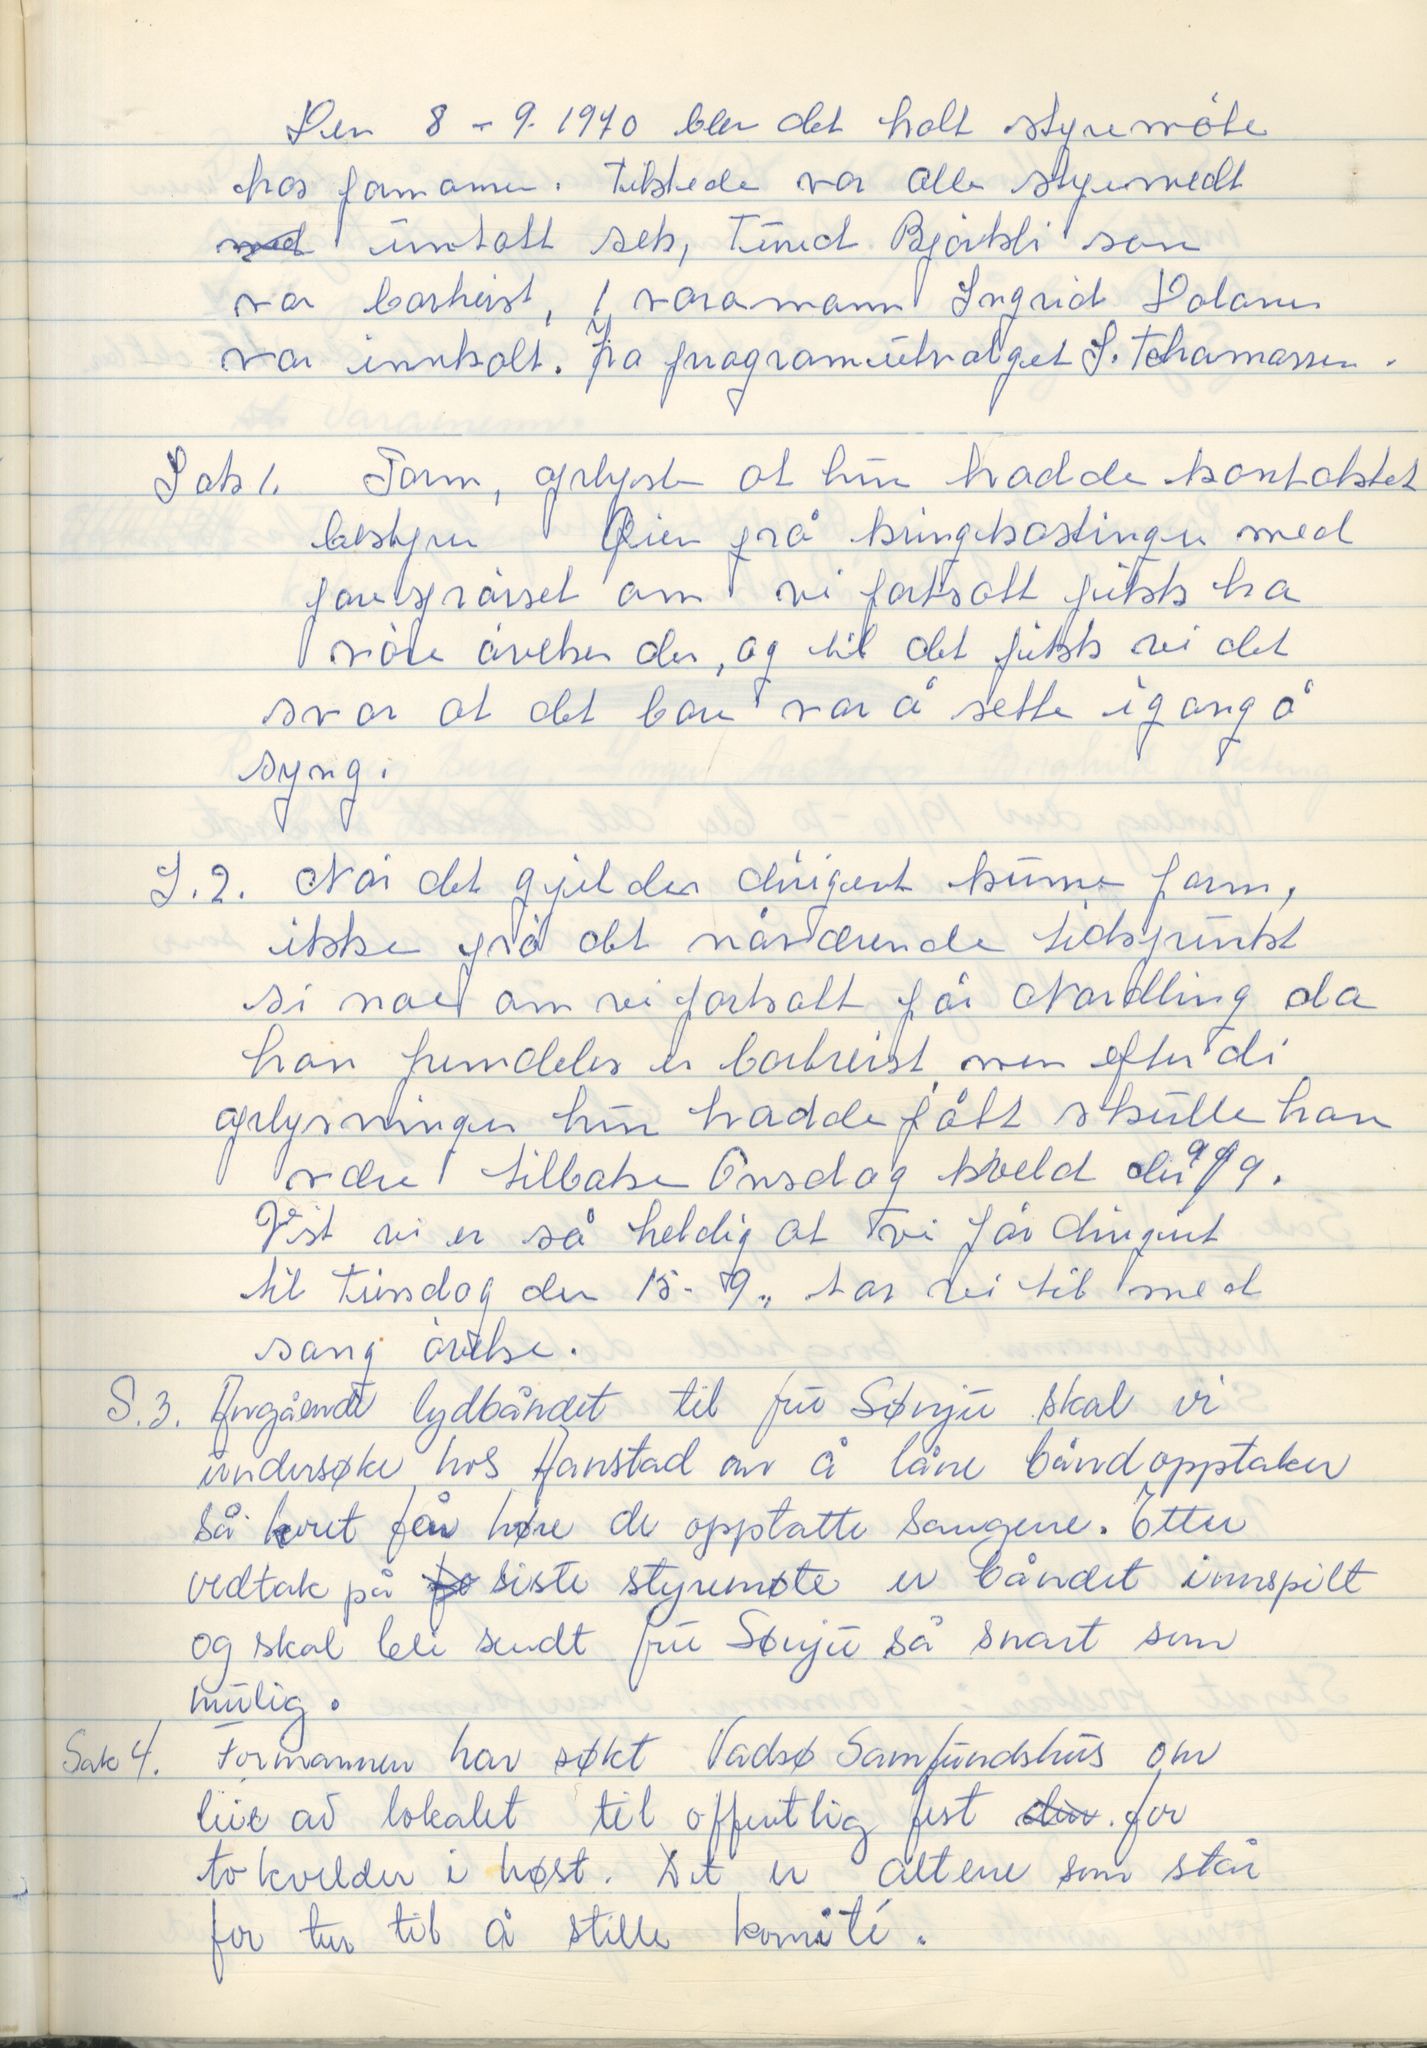 Den 8 - 9. 1970 blev det holt styremöte
hos formannen. Tilstede var alle styremedt
unntatt sek, Turid Björkli som
var bortreist, 1 varamann Ingrid Dolonen
var innkalt. fra programutvalget S. Thomassen.
Sak 1. Form, oplyste at hun hadde kontaktet
bestyrer Öien på kringkastingen med
forespörsel om vi fortsatt fikk ha
våre övelser der, og til det fikk vi det
svar at det bare var å sette igang å
syng.
S. 2. Når det gjelder dirigent kunne form,
ikke på det nåværende tidspunkt
si noe om vi fortsatt får Nordling da
han fremdeles er bortreist, men efter di
oplysninger hun hadde fått skulle han
være tilbake Onsdag kveld den 9/9.
Vist vi er så heldig at vi får dirigent
til Tirsdag den 15. - 9., tar vi til med
sang övelse.
S. 3. Angående lydbåndet til fru Sønju skal vi
undersøke hos Hanstad om å låne båndopptaker
så koret får høre de opptatte sangene. Etter
vedtak på siste styremøte er båndet innspilt
og skal bli sendt fru Sønju så snart som
mulig.
Sak 4. Formannen har søkt Vadsø Samfundshus om
leie av lokalet til offentlig fest for
to kvelder i høst. Det er altene som står
for tur til å stille komité.